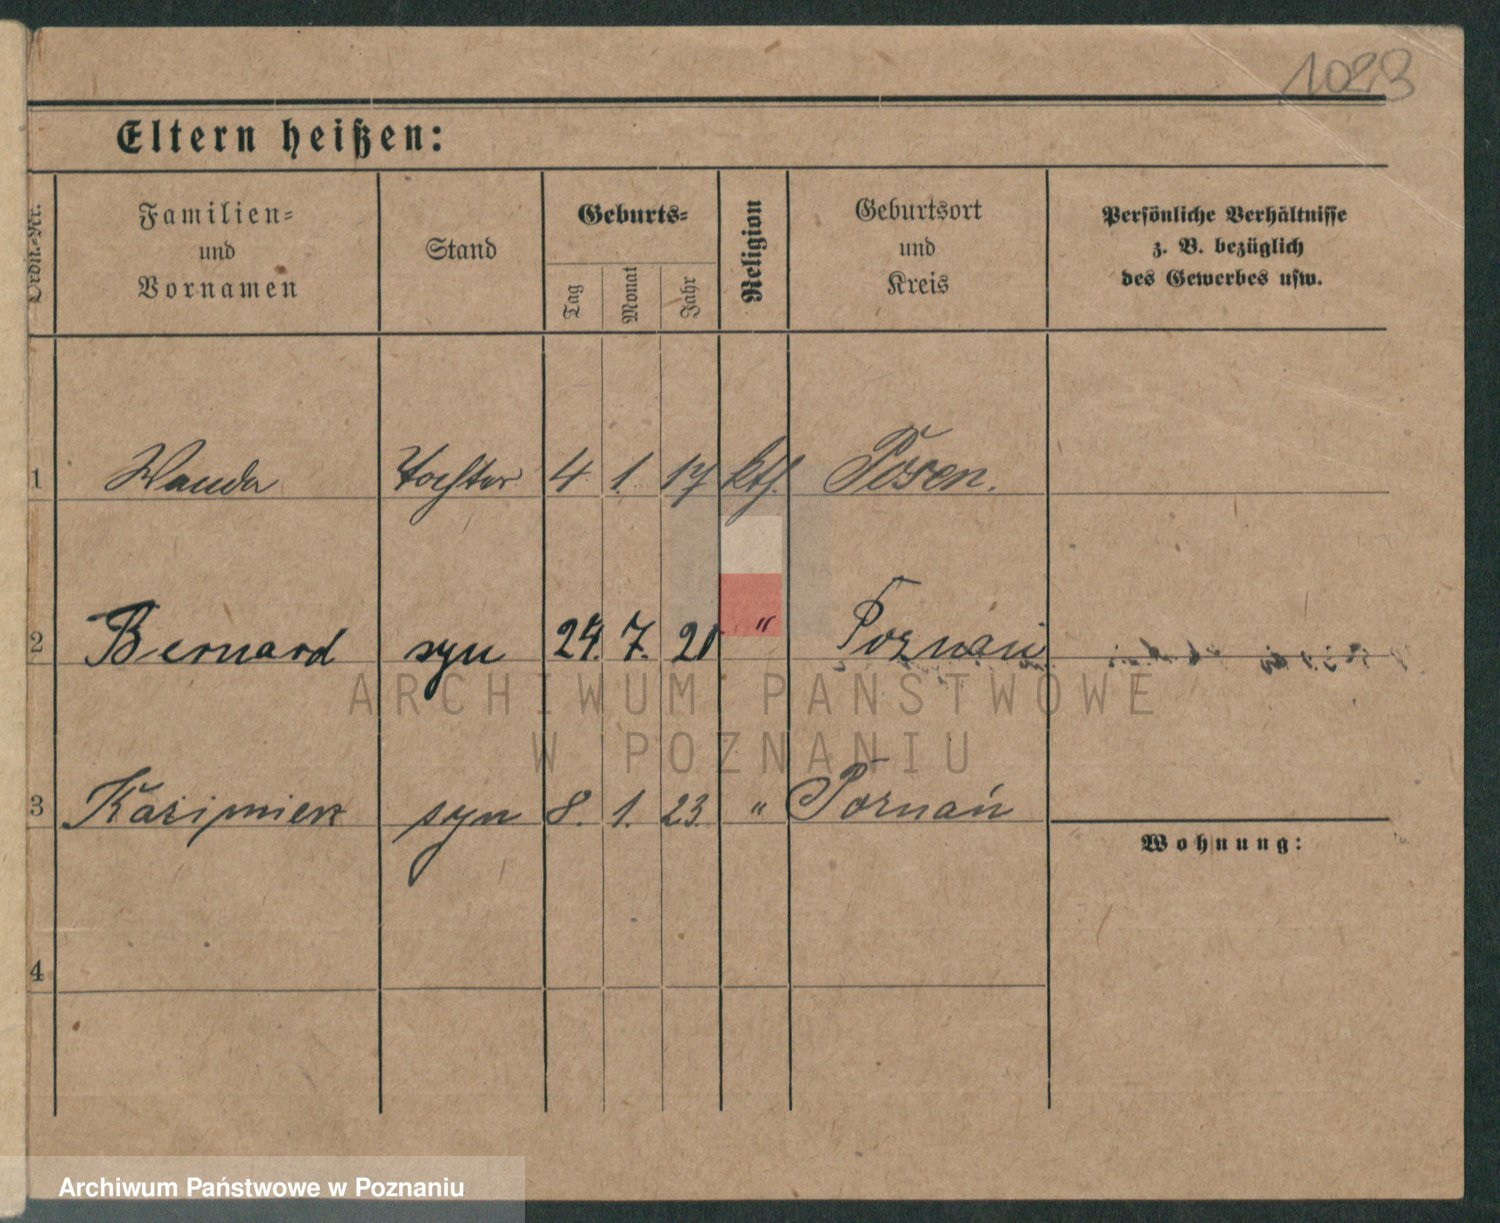 1023
Eltern heißen:
Ordn.-Nr.
Familien-
und
Vornamen
Stand
Geburts-
Tag
Monat
Jahr
Religion
Geburtsort
und
Kreis
Persönliche Verhältnisse
z. B. bezüglich
des Gewerbes usw.
1 Wanda Tochter 4 1. 17 kth. Posen.
2 Bernard syn 24. 7. 21 " Poznań
ARCHIWUM PAŃSTWOWE
W POZNANIU
3 Kazimierz syn 8. 1. 23. " Poznań
Wohnung:
4
Archiwum Państwowe w Poznaniu